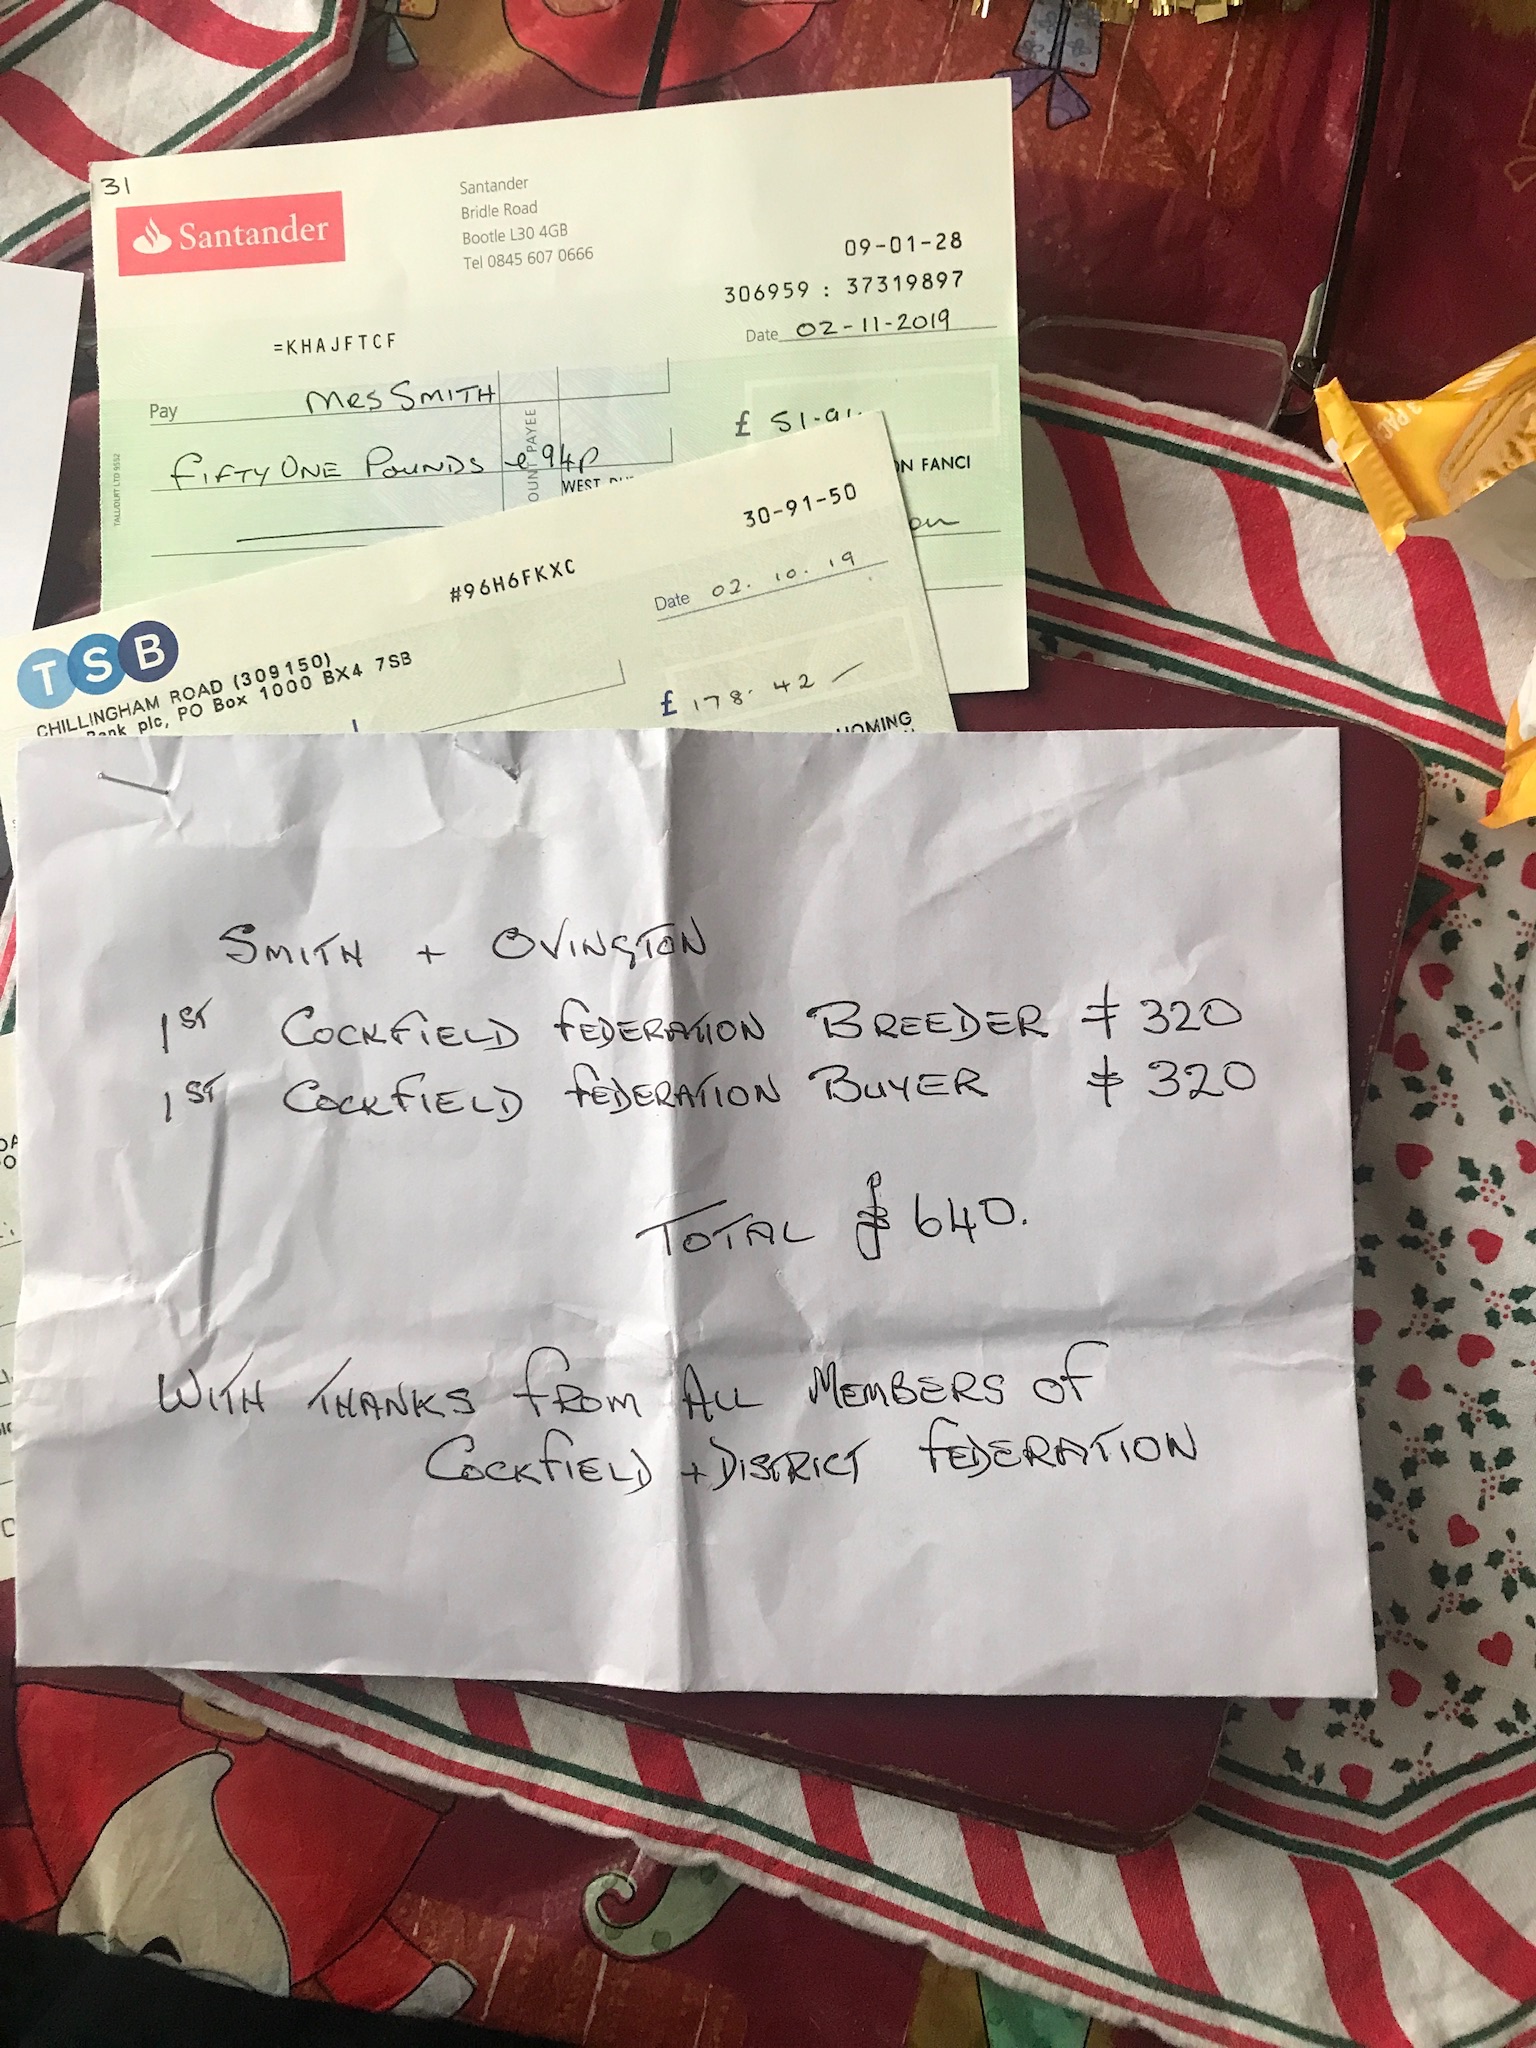 31
Santander
Santander
Bridle Road
Bootle L30 4GB
Tel 0845 607 0666
09-01-28
306959 : 37319897
Date 02-11-2019
=KHAJFTCF
Pay Mrs SMITH
£ 51-94
FIFTY ONE POUNDS & 94p
OUNT PAYEE
TALL/DUIT LTD 9552
WEST
ON FANCI
30-91-50
#96H6FKXC
Date 02.10.19
TSB
CHILLINGHAM ROAD (309150)
Bank plc, PO Box 1000 BX4 7SB
£ 178.42
HOMING
SMITH + OVINGTON
1ST COCKFIELD FEDERATION BREEDER £ 320
1ST COCKFIELD FEDERATION BUYER £ 320
TOTAL £ 640.
WITH THANKS FROM ALL MEMBERS OF
COCKFIELD + DISTRICT FEDERATION